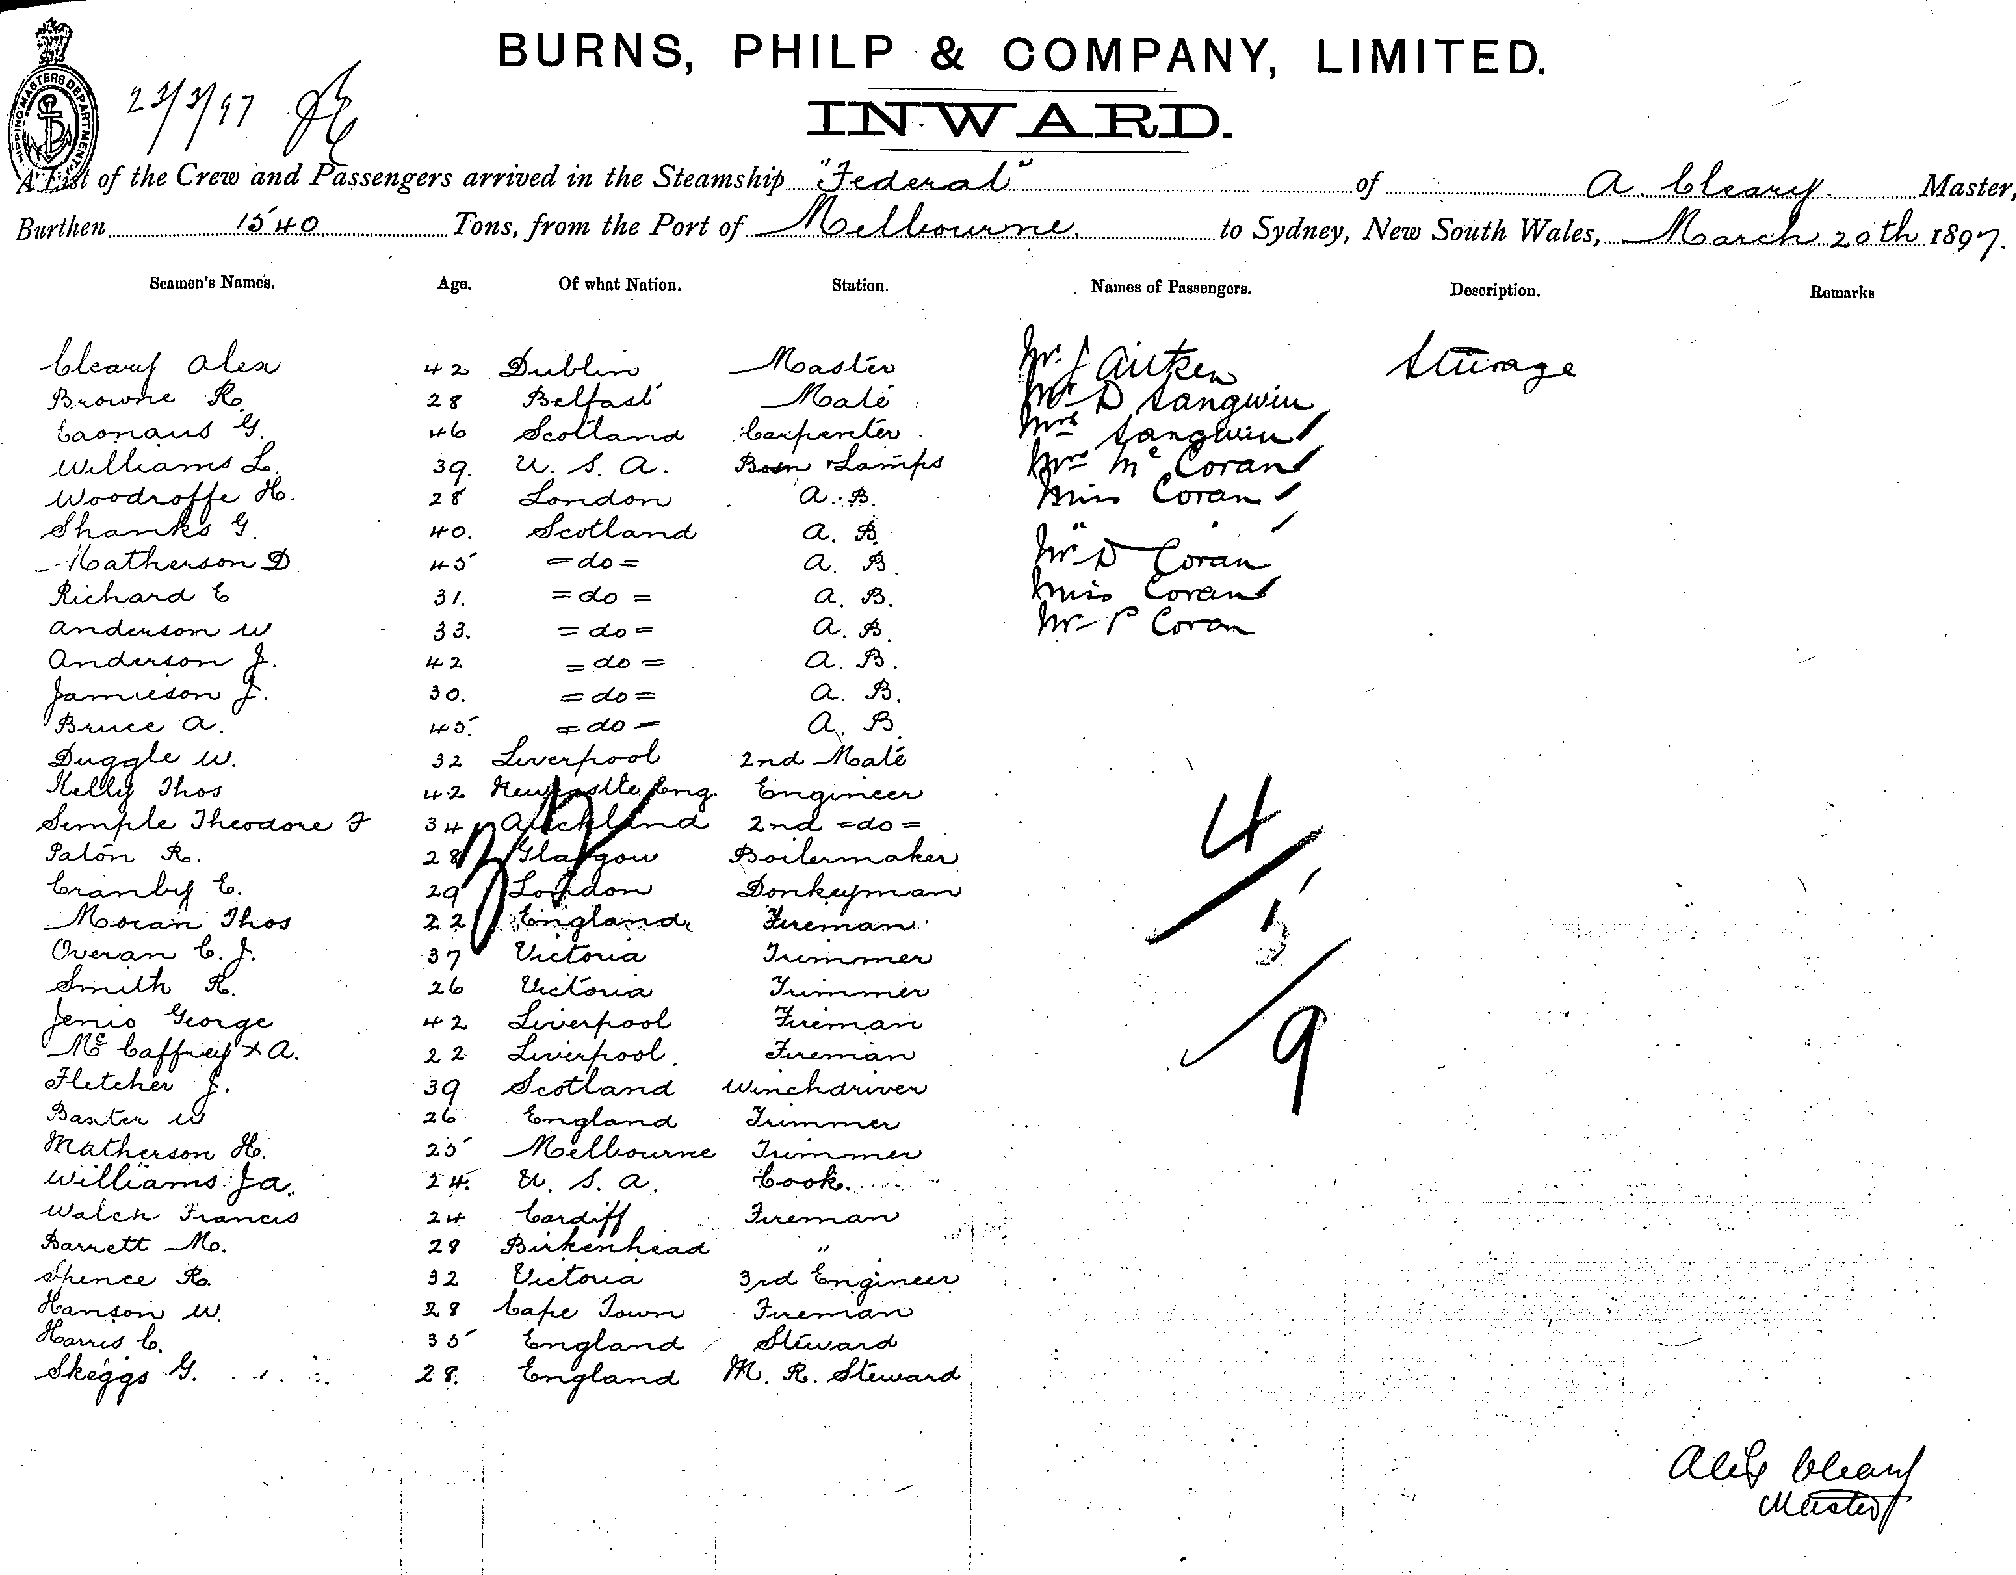 BURNS, PHILP & COMPANY, LIMITED.
INWARD.
SHIPPING MASTERS DEPARTMENT
23/3/97
A List of the Crew and Passengers arrived in the Steamship "Federal" of A. Cleary. Master,
Burthen 1540 Tons, from the Port of Melbourne. to Sydney, New South Wales, March 20th 1897.
Seamen's Names. Age. Of what Nation. Station. Names of Passengers. Description. Remarks
Cleary Alex 42 Dublin Master Mr J Aitken Steerage
Browne R. 28 Belfast Mate Mr D Sangwin
G. 46 Scotland Carpenter. Mrs Sangwin
Williams L. 39. U. S. A. Bosn & Lamps Mrs Mc Coran
Woodroffe H. 28 London A. B. Miss Coran
Shanks G. 40. Scotland A. B. "
Matherson D 45 = do = A. B. Mr D Coran
Richard E 31. = do = A. B. Miss Coran
Anderson W 33. = do = A. B. Mr P Coran
Anderson J. 42 = do = A. B.
Jamieson J. 30. = do = A. B.
Bruce A. 45. = do = A. B.
Duggle W. 32 Liverpool 2nd Mate
Kelly Thos 42 Newcastle Eng. Engineer
Semple Theodore F 34 Auckland 2nd = do =
Paton R. 28 Glasgow Boilermaker
Cranby E. 29 London Donkeyman
Moran Thos 22 England. Fireman
Overan C. J. 37 Victoria Trimmer
Smith R. 26 Victoria Trimmer
Jenio George 42 Liverpool Fireman
Mc Caffrey + A. 22 Liverpool. Fireman
Fletcher J. 39 Scotland Winchdriver
Baxter W 26 England Trimmer
Matherson H. 25 Melbourne Trimmer
Williams Ja. 24. U. S. A. Cook.
Walch Francis 24 Cardiff Fireman
Barrett M. 28 Birkenhead "
Spence R. 32 Victoria 3rd Engineer
Hanson W. 28 Cape Town Fireman
Harris C. 35 England Steward
Skeggs G. 28. England M. R. Steward
32
4
5
9
Alex Cleary
Master